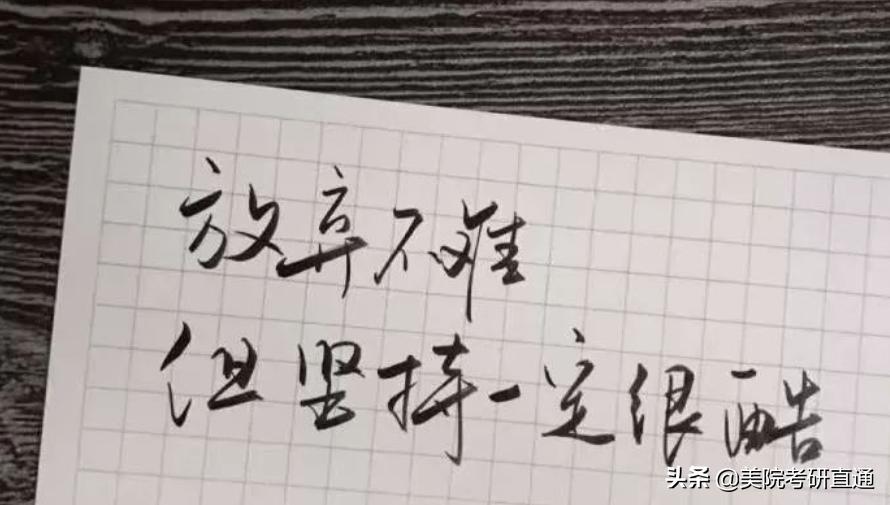 放弃不难
但坚持一定很酷
头条 @美院考研直通